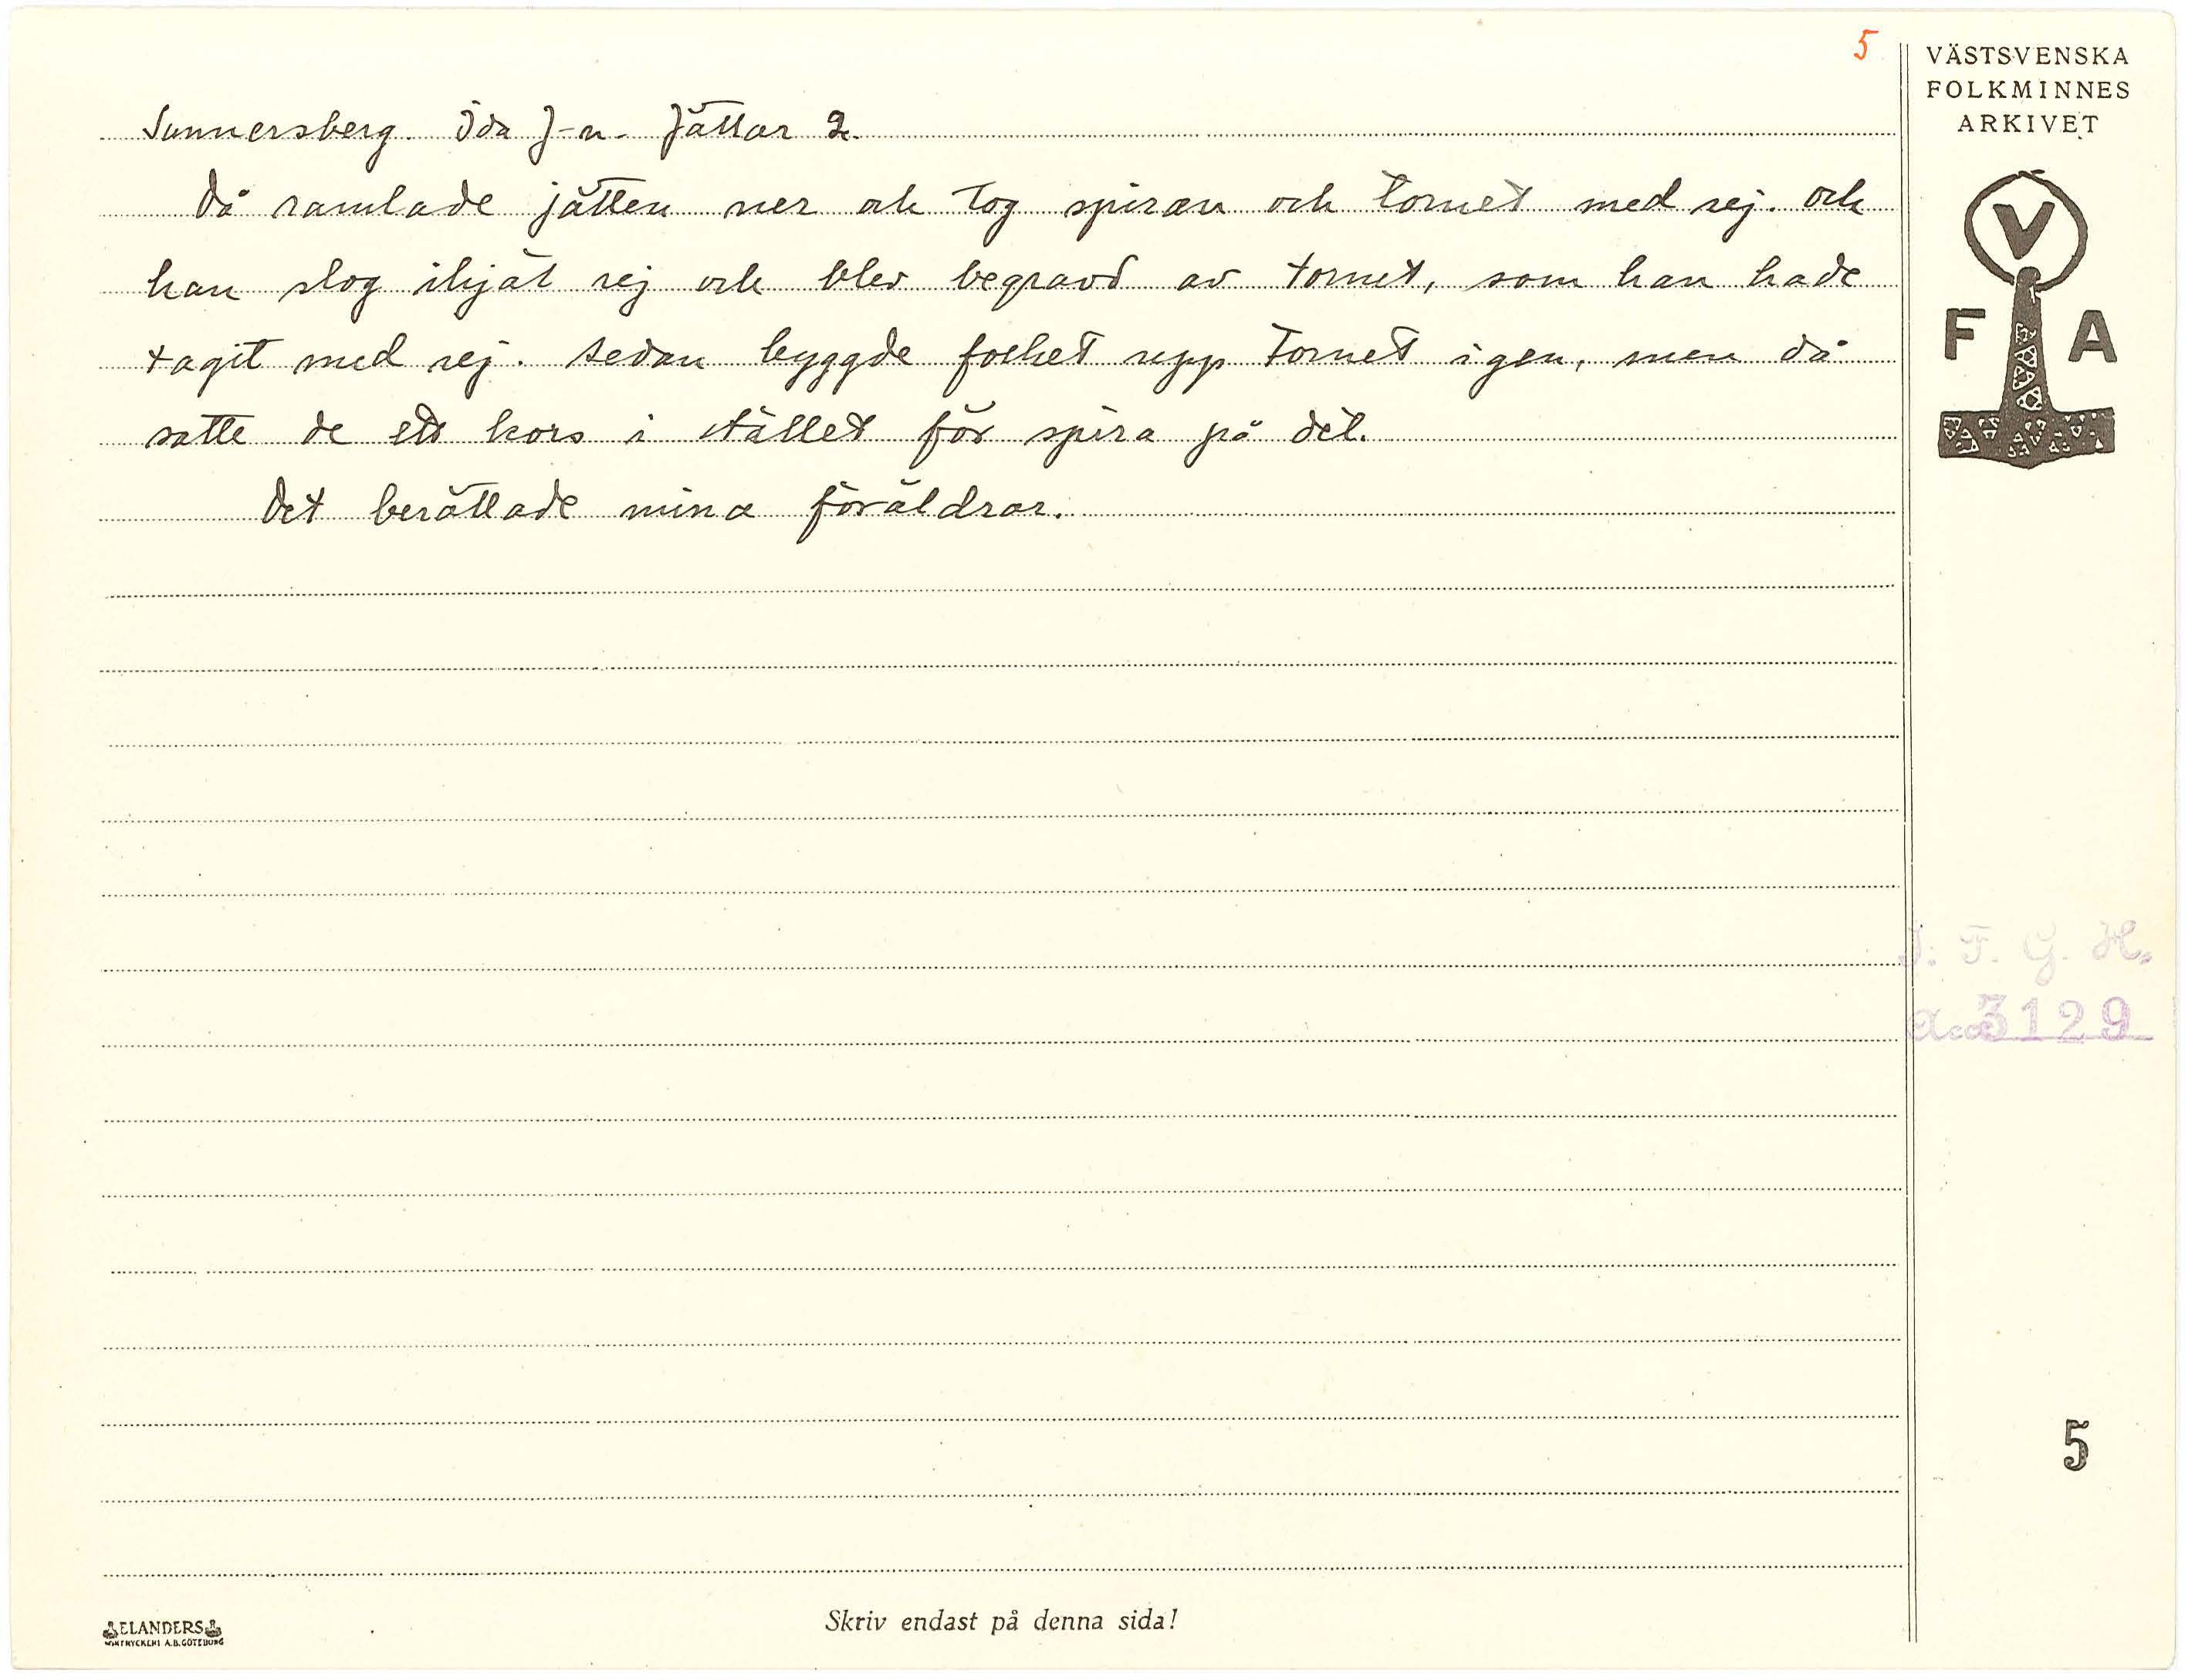 5
VÄSTSVENSKA
FOLKMINNES
ARKIVET
V
F A
Sunnersberg. Ida J-n. Jättar 2.
Då ramlade jätten ner och tog spiran och tornet med sej. och
han slog ihjäl sej och blev begravd av tornet, som han hade
tagit med sej. Sedan byggde folket upp tornet igen, men då
satte de ett kors i stället för spira på det.
Det berättade mina föräldrar.
I. F. G. H.
Acc. 3129
5
ELANDERS
Skriv endast på denna sida!